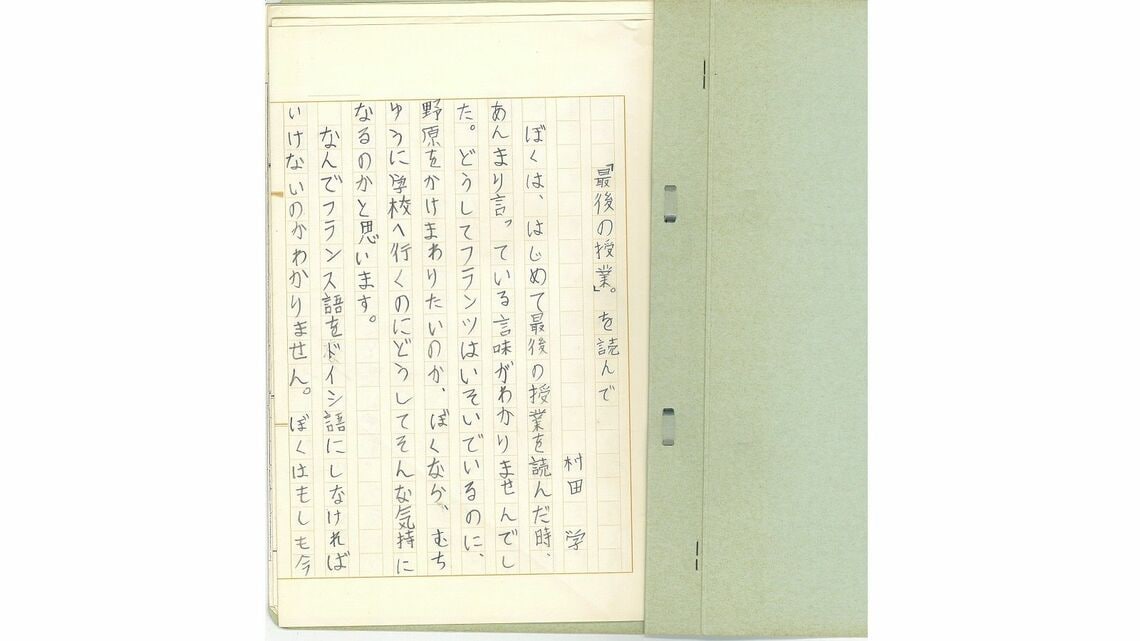 「最後の授業」。を読んで
村田 学
ぼくは、はじめて最後の授業を読んだ時、
あんまり言っている言味がわかりませんでし
た。どうしてフランツはいそいでいるのに、
野原をかけまわりたいのか、ぼくなら、むち
ゅうに学校へ行くのにどうしてそんな気持に
なるのかと思います。
なんでフランス語をドイツ語にしなければ
いけないのかわかりません。ぼくはもしも今